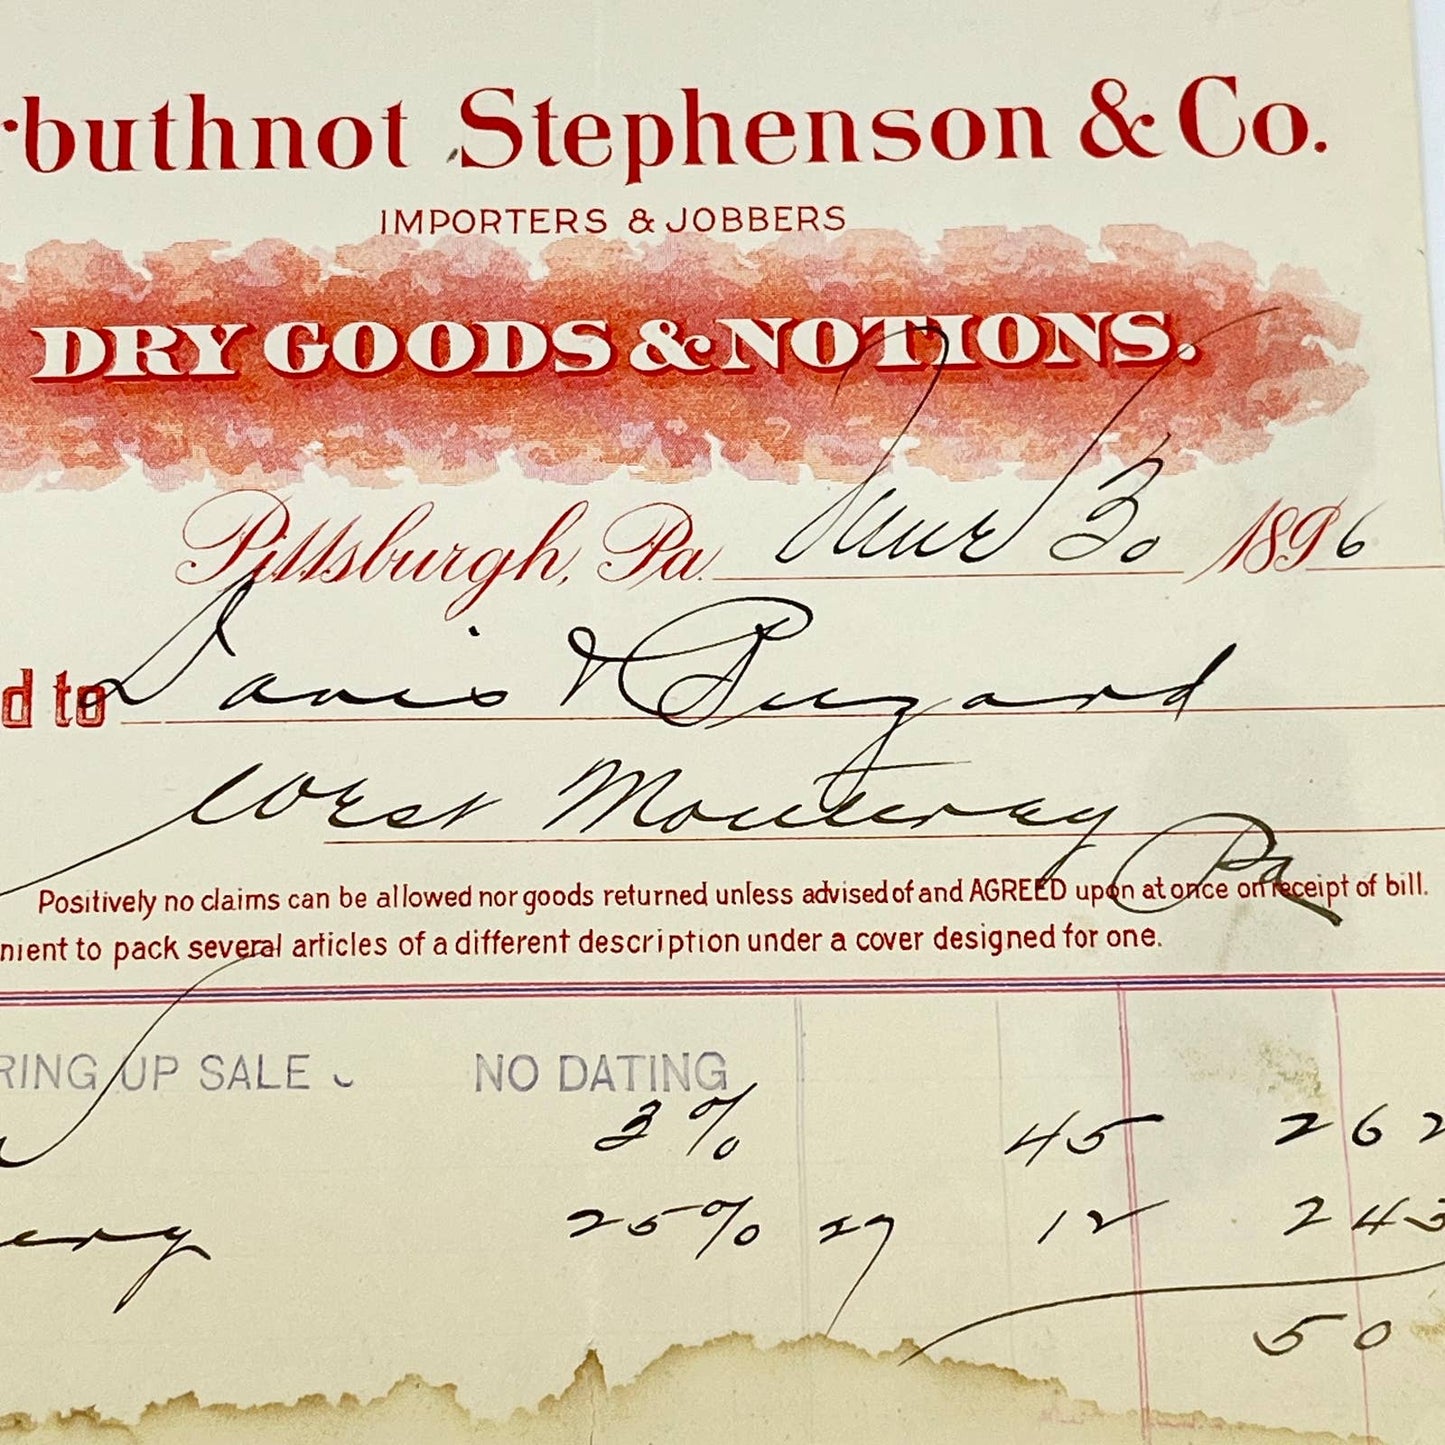 rbuthnot Stephenson & Co.
IMPORTERS & JOBBERS
DRY GOODS & NOTIONS.
Pittsburgh, Pa. June 30 1896
d to Davis & Bugard
West Monterey Pa
Positively no claims can be allowed nor goods returned unless advised of and AGREED upon at once on receipt of bill.
nient to pack several articles of a different description under a cover designed for one.
RING UP SALE NO DATING
3% 45 262
25% 27 12 243
50